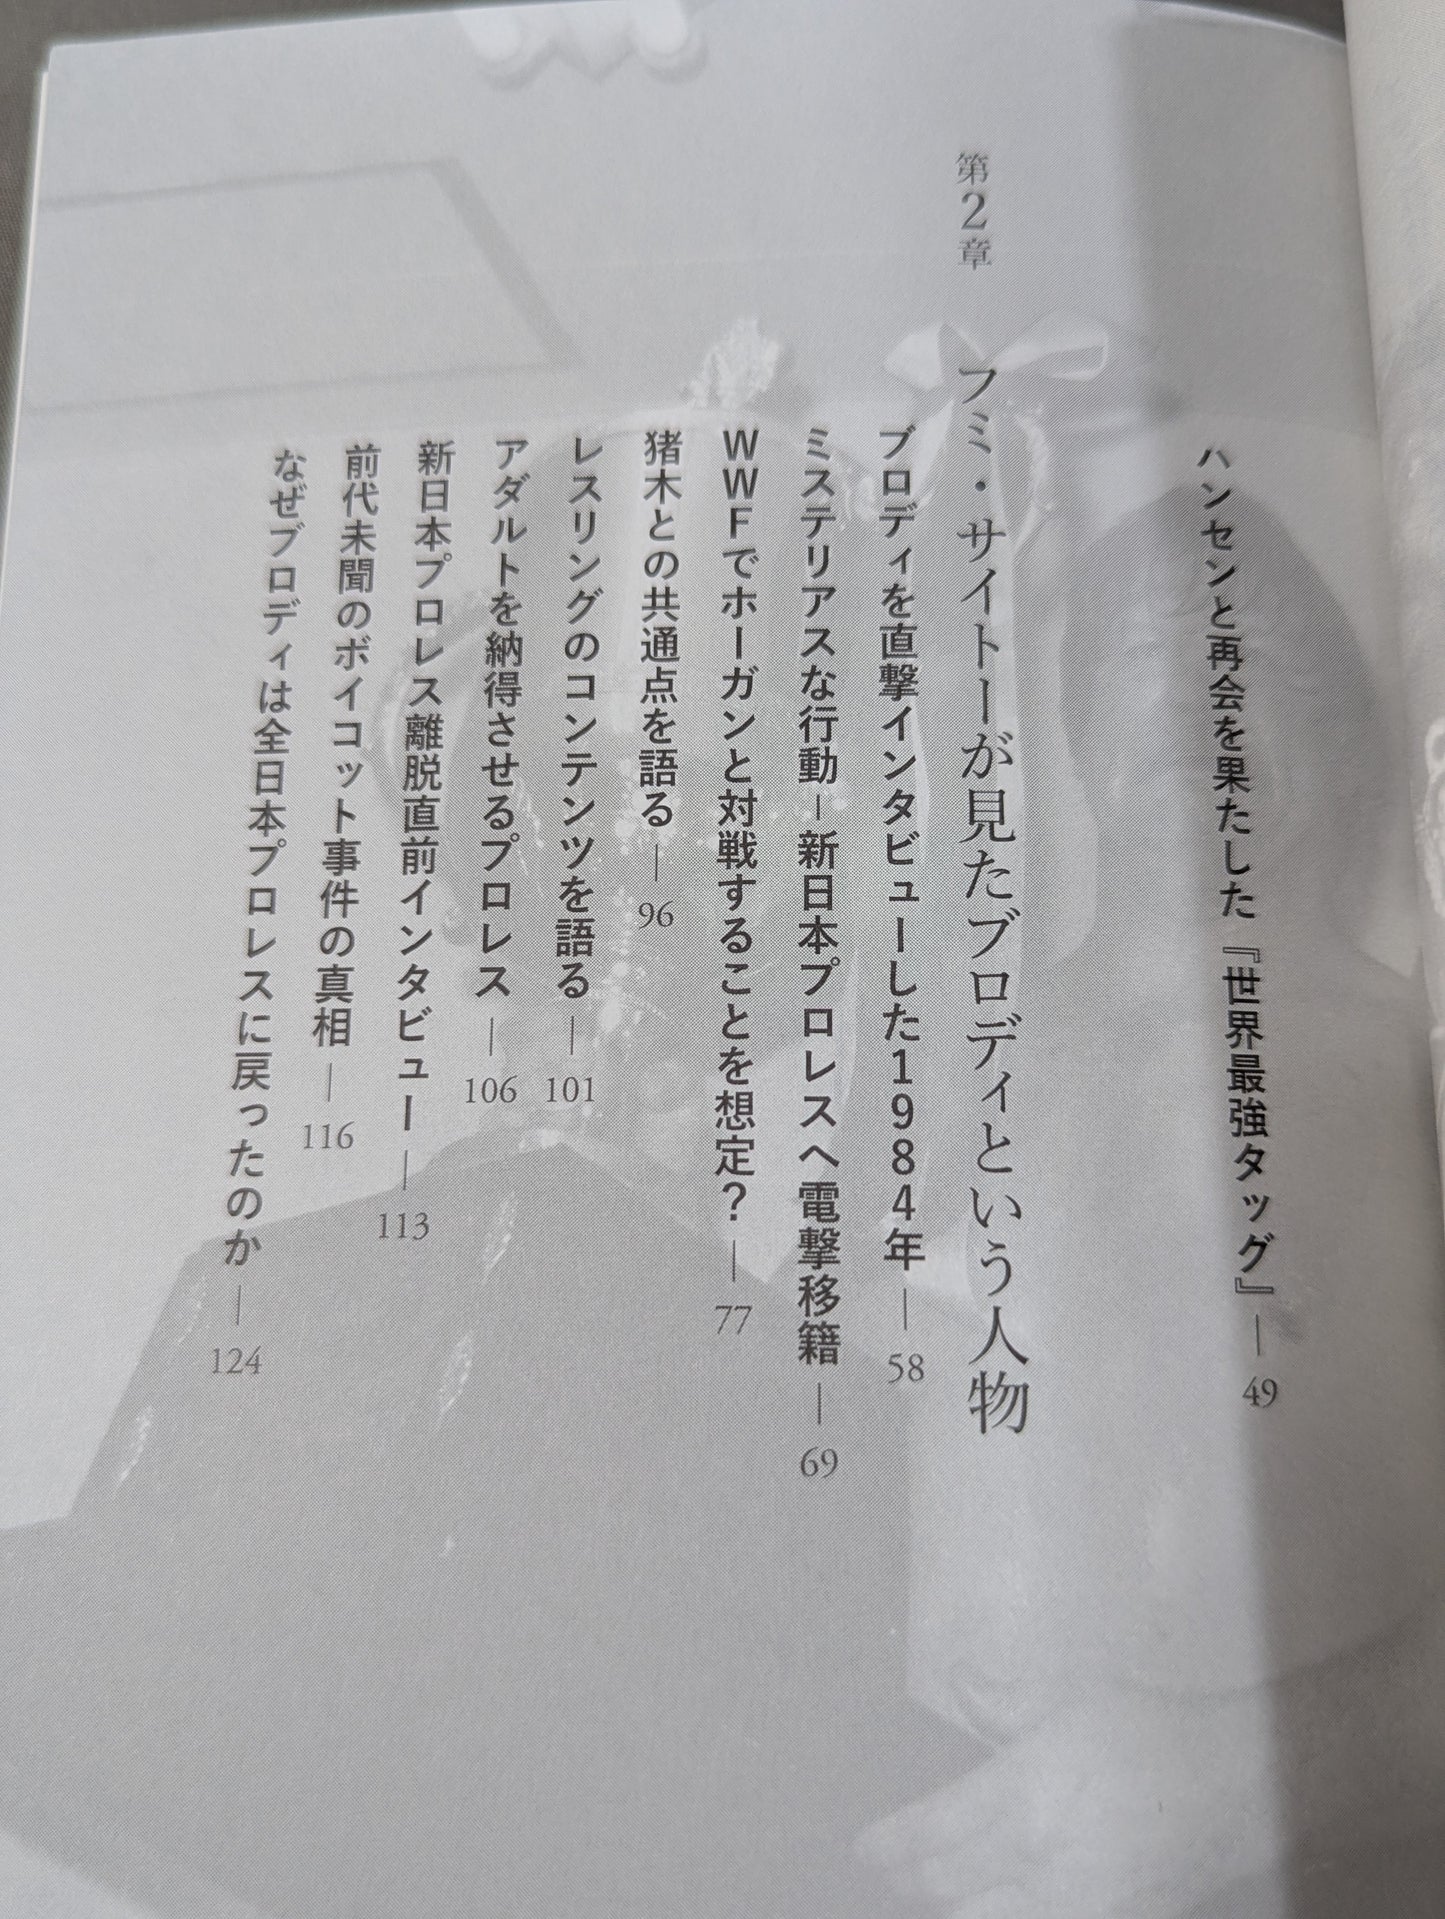 ハンセンと再会を果たした『世界最強タッグ』―49
第2章 フミ・サイトーが見たブロディという人物
ブロディを直撃インタビューした1984年―58
ミステリアスな行動－新日本プロレスへ電撃移籍―69
WWFでホーガンと対戦することを想定?―77
猪木との共通点を語る―96
レスリングのコンテンツを語る―101
アダルトを納得させるプロレス―106
新日本プロレス離脱直前インタビュー―113
前代未聞のボイコット事件の真相―116
なぜブロディは全日本プロレスに戻ったのか―124